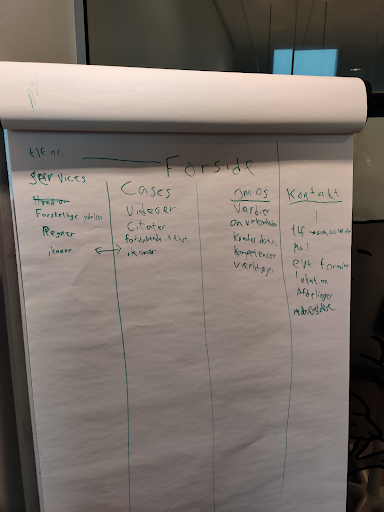 tlf nr.
Forside
Services
Forskellige ydelser
Regner
ikoner
Cases
Videoer
Citater
Fordybende tekst
ikoner
om os
Værdier
om virksomheden
Kompetencer
værktøjer
Kontakt
tlf
Mail
evt formular
lokation
Afdelinger